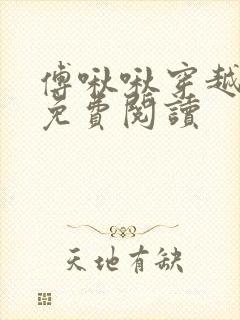 傅啾啾穿越
免費閱讀
天地有缺